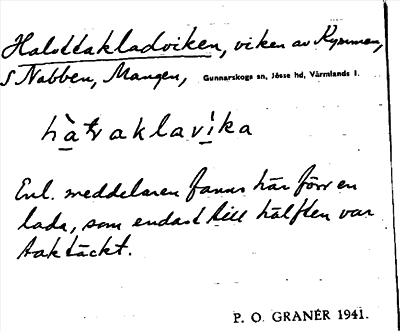 Halvtakladviken, viken av Kymmen,
S Nabben, Mangen, Gunnarskogs sn, Jösse hd, Värmlands l.
hàtvaklavika
Enl. meddelaren fanns här förr en
lada, som endast till hälften var
taktäckt.
P. O. GRANÉR 1941.